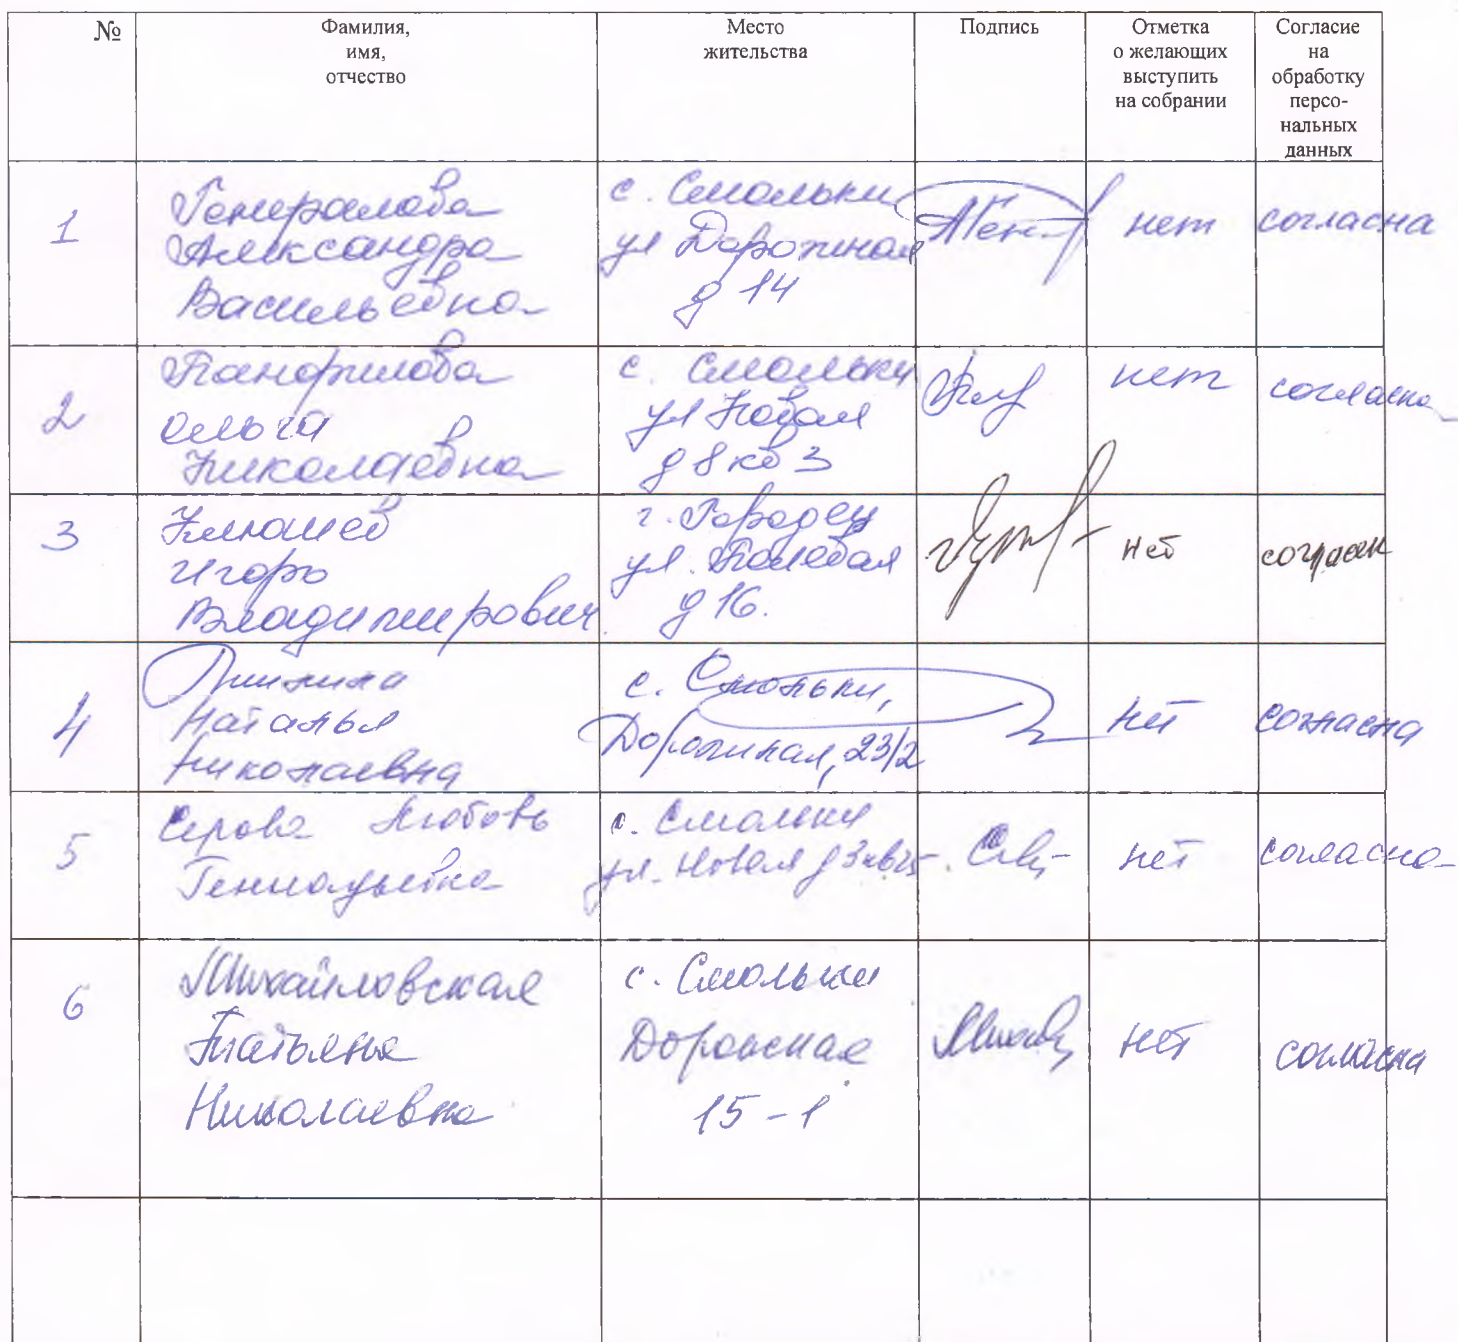 №
Фамилия,
имя,
отчество
Место
жительства
Подпись
Отметка
о желающих
выступить
на собрании
Согласие
на
обработку
персо-
нальных
данных
1
Генералова
Александра
Васильевна
с. Смольки
ул Дорожная
д 14
нет
согласна
2
Панфилова
Ольга
Николаевна
с. Смольки
ул Новая
д 8 кв 3
нет
согласна
3
Игорь
Владимирович
г. Городец
ул. Полевая
д 16.
нет
согласен
4
Наталья
Николаевна
с. Смольки,
Дорожная, 23/2
нет
согласна
5
Серова Любовь
Геннадьевна
с. Смольки
ул. Новая д 3
нет
согласна
6
Михайловская
Татьяна
Николаевна
с. Смольки
Дорожная
15-1
нет
согласна